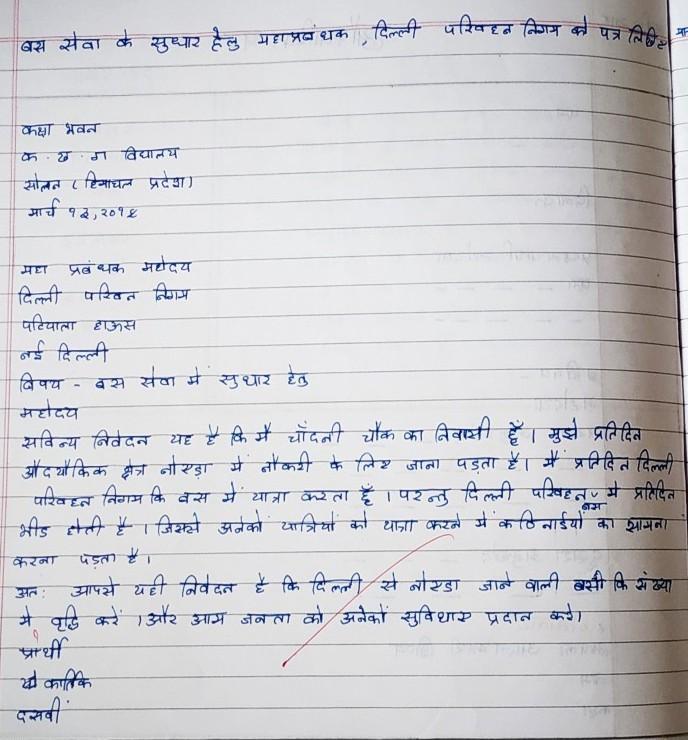 बस सेवा के सुधार हेतु महाप्रबंधक, दिल्ली परिवहन निगम को पत्र लिखिए
कक्षा भवन
क. ख. ग विद्यालय
सोलन (हिमाचल प्रदेश)
मार्च १३,२०१६
महा प्रबंधक महोदय
दिल्ली परिवन निगम
पटियाला हाऊस
नई दिल्ली
विषय - बस सेवा में सुधार हेतु
महोदय
सविन्य निवेदन यह है कि मैं चाँदनी चौक का निवासी हूँ। मुझे प्रतिदिन
औदयौकिक क्षेत्र नोएडा में नौकरी के लिए जाना पड़ता है। मैं प्रतिदिन दिल्ली
परिवहन निगम कि बस में यात्रा करता हूँ। परन्तु दिल्ली परिवहन बस में प्रतिदिन
भीड होती है। जिससे अनेकों यात्रियों को यात्रा करने में कठिनाईयों का सामना
करना पड़ता है।
अत: आपसे यही निवेदन है कि दिल्ली से नोएडा जाने वाली बसों कि संख्या
मे वृद्धि करें। और आम जनता को अनेकों सुविधाए प्रदान करे।
प्रार्थी
कार्तिक
दसवीं